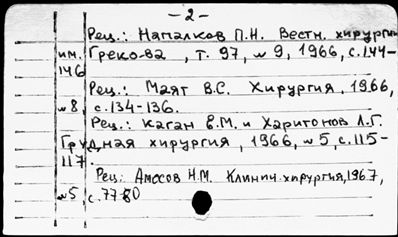 - 2 -
Рец.: Напалков П.Н. Вестн. хирургии
им. Грекова, т. 97, № 9, 1966, с.144-
146
Рец.: Маят В.С. Хирургия, 1966,
№ 8, с.134-136.
Рец.: Каган Е.М. и Харитонов Л.Г.
Грудная хирургия, 1966, № 5, с.115-
117.
Рец: Амосов Н.М. Клинич. хирургия, 1967,
№5, с.77-80